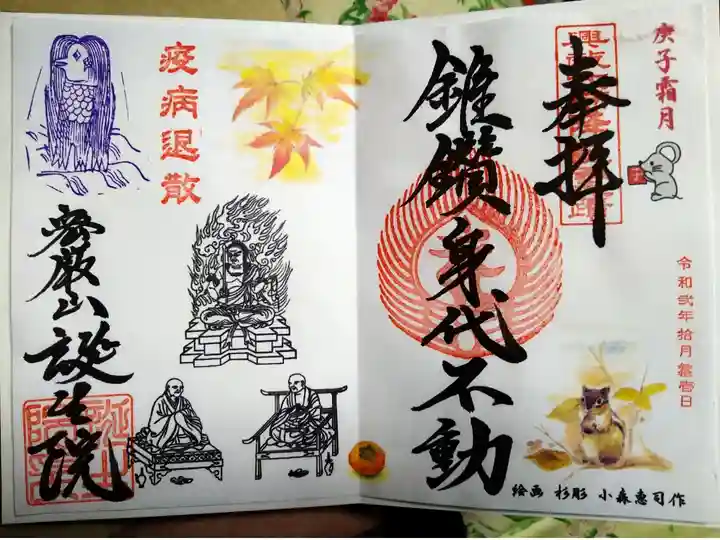 庚子霜月
奉拝
錐鑽身代不動
令和弐年 拾月
絵画 杉彫 小森惠司作
疫病退散
密厳山 誕生院